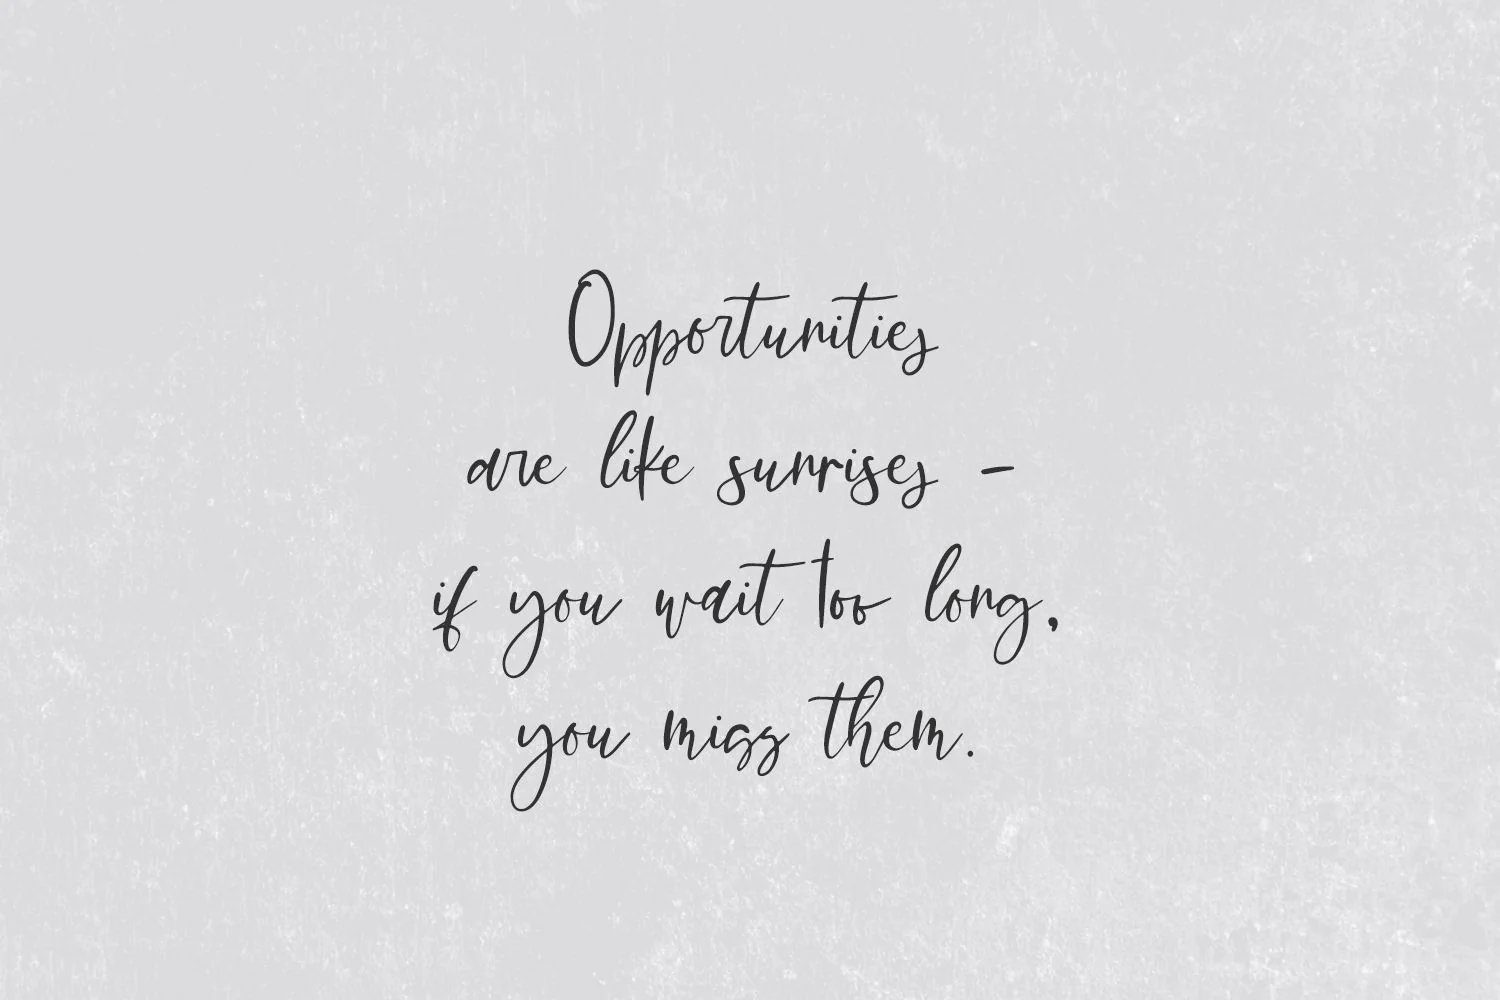 Opportunities
are like sunrises -
if you wait too long,
you miss them.